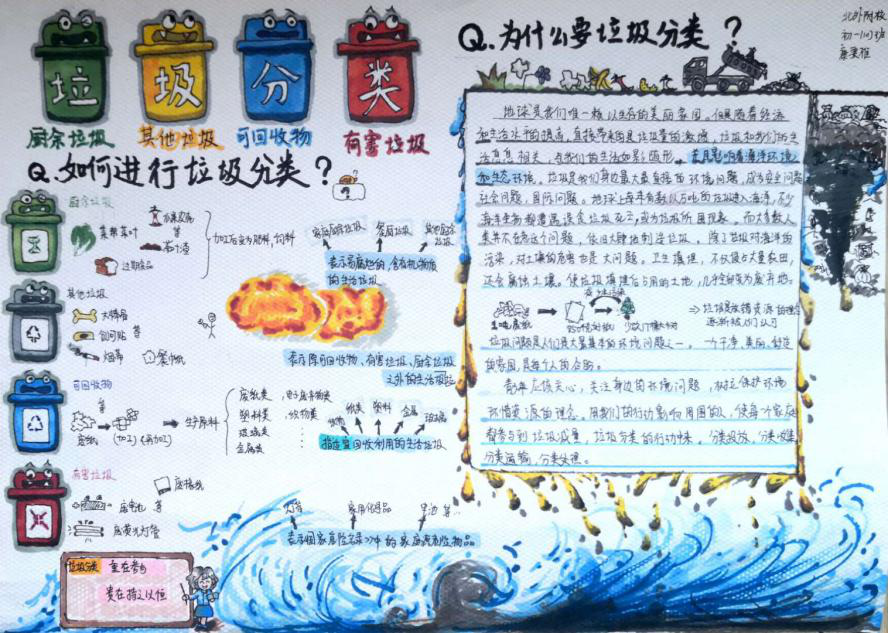 垃 圾 分 类
厨余垃圾 其他垃圾 可回收物 有害垃圾
Q.如何进行垃圾分类?
厨余垃圾
菜帮菜叶
等
茶叶渣
过期食品
加工后变为肥料,饲料
家庭厨余垃圾
其他厨余垃圾
表示易腐烂的,含有机物质
的生活垃圾
其他垃圾
大棒骨
创可贴 等
烟蒂
表示除可回收物、有害垃圾、厨余垃圾
之外的生活垃圾
可回收物
等
废纸
(加工) (再加工)
生产原料
废纸类
塑料类
玻璃类
金属类
织物类
织物 纸类 塑料 金属 玻璃
指适宜回收利用的生活垃圾
有害垃圾
废电池 等
废荧光灯管
灯管
家用化学品
表示国家危险名录>>中的家庭源危险物品
垃圾分类
重在参与
贵在持之以恒
北外附校
Q.为什么要垃圾分类?
地球是我们唯一赖以生存的美丽家园。但是随着经济
和生活水平的提高,直接带来的是垃圾量的激增,垃圾和我们的生
活息息相关,与我们的生活如影随形,
和生态环境。垃圾是我们身边最大最直接的环境问题,成为安全问题
社会问题,国际问题。地球上每年有数以万吨的垃圾进入海洋,不少
海洋生物都遭遇误食垃圾
类并不在意这个问题,依旧大肆地制造垃圾。除了垃圾对海洋的
污染,对土壤的危害也是大问题,卫生填埋,不仅侵占大量农田,
还会腐蚀土壤。使垃圾填埋后占用的土地,几乎全部成为废弃地。
垃圾问题是人们最大最基本的环境问题之一,一个干净、美丽、舒适
的家园,是每个人的合盼。
青年应该关心,关注身边的环境问题,树立保护环境
珍惜资源的理念。用我们的行动影响周围的人,使每个家庭
都参与到垃圾减量,垃圾分类的行动中来,分类投放,分类收集
分类运输,分类处理。